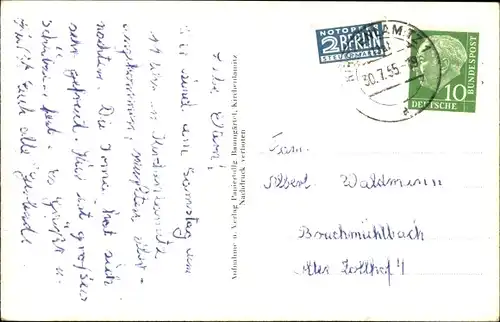 Liebe Eltern!
Wir sind am Samstag um
11 Uhr in Kirchenlamitz
angekommen, mußten über-
nachten. Die Toma hat sich
sehr gefreut. Hier ist großes
Schützenfest. Es grüßt u.
küßt Euch alle
Aufnahme u. Verlag Papierhdlg. Baumgärtel, Kirchenlamitz
Nachdruck verboten
NOTOPFER
2 BERLIN
STEUERMARKE
30.7.55
a
10
DEUTSCHE
BUNDESPOST
Fam.
Albert Waldmann
Bruchmühlbach
Alter Zollhof 4